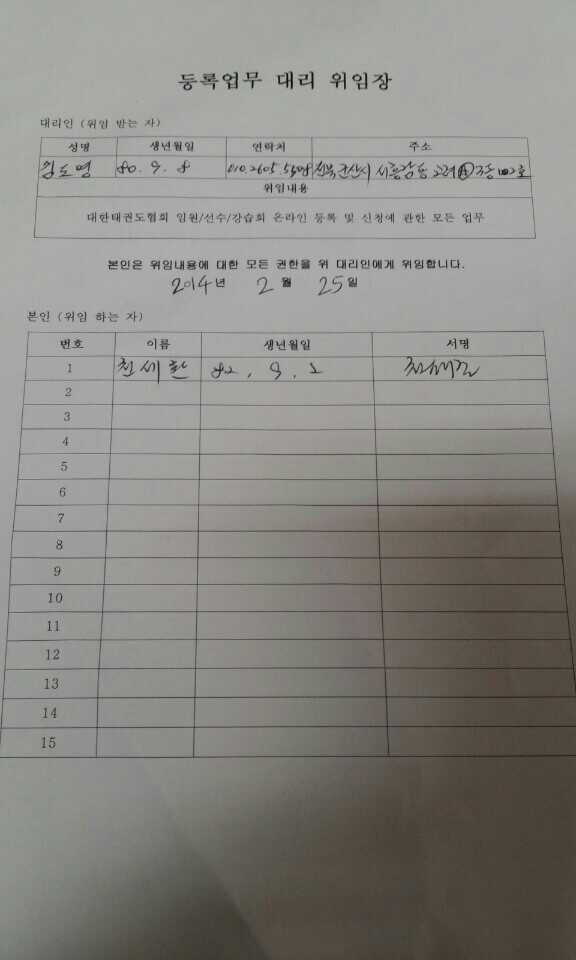 등록업무 대리 위임장
대리인 (위임 받는 자)
성명 생년월일 연락처 주소
김도영 80. 9. 8 010.2605. 전북 군산시
위임내용
대한태권도협회 임원/선수/강습회 온라인 등록 및 신청에 관한 모든 업무
본인은 위임내용에 대한 모든 권한을 위 대리인에게 위임합니다.
2014년 2월 25일
본인 (위임 하는 자)
번호 이름 생년월일 서명
1 천세환 82. 9. 2
2
3
4
5
6
7
8
9
10
11
12
13
14
15